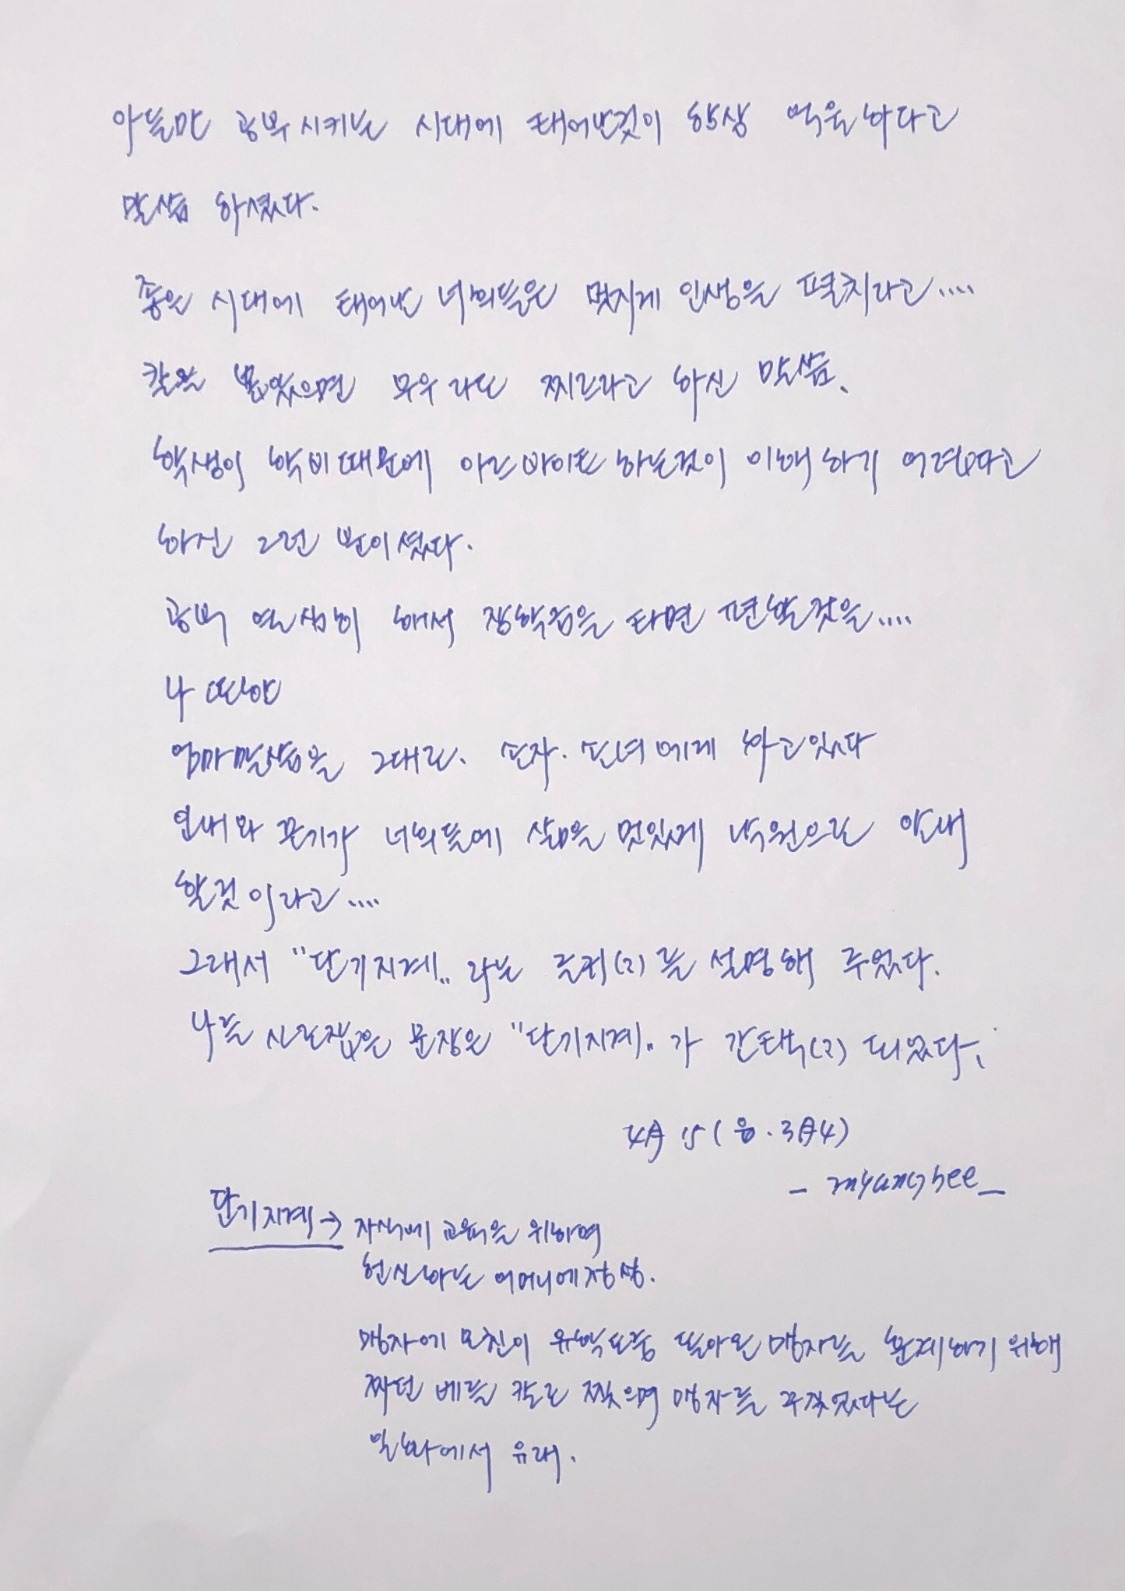 아들만 공부시키는 시대에 태어난것이 항상 억울하다고
말씀 하셨다.
좋은 시대에 태어난 너희들은 멋지게 인생을 펼치라고....
칼을 뽑았으면 무우라도 찌르라고 하신 말씀.
학생이 학비때문에 아르바이트 하는것이 이해하기 어렵다고
하신 그런 분이셨다.
공부 열심히 해서 장학금을 타면 편할것을....
나 또한
엄마말씀을 그대로. 손자. 손녀에게 하고있다
인내와 끈기가 너희들에 삶을 멋있게 낙원으로 안내
할것이라고....
그래서 "단기지계" 라는 글귀(?)를 설명해 주었다.
나를 사로잡은 문장은 "단기지계" 가 간택(?) 되었다.
4月 15 (음.3月4)
- myunghee -
단기지계 → 자식에 교육을 위하여
헌신하는 어머니에정성.
맹자에 모친이 유학도중 돌아온 맹자를 훈계하기 위해
짜던 베를 칼로 찢으며 맹자를 꾸짖었다는
일화에서 유래.